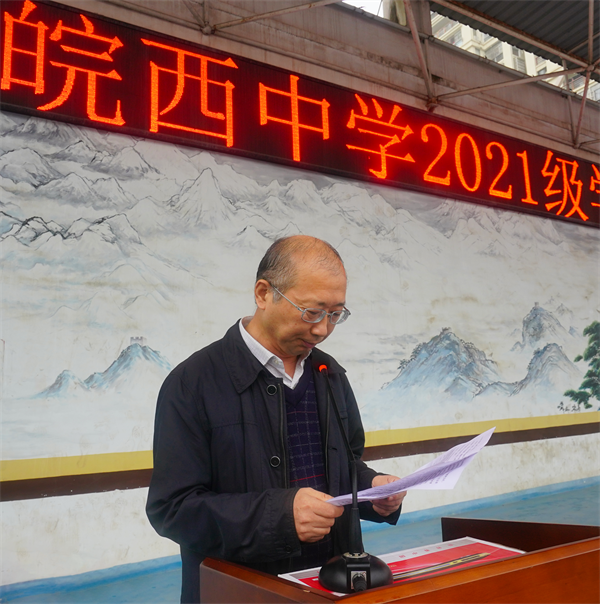 皖西中学2021级学